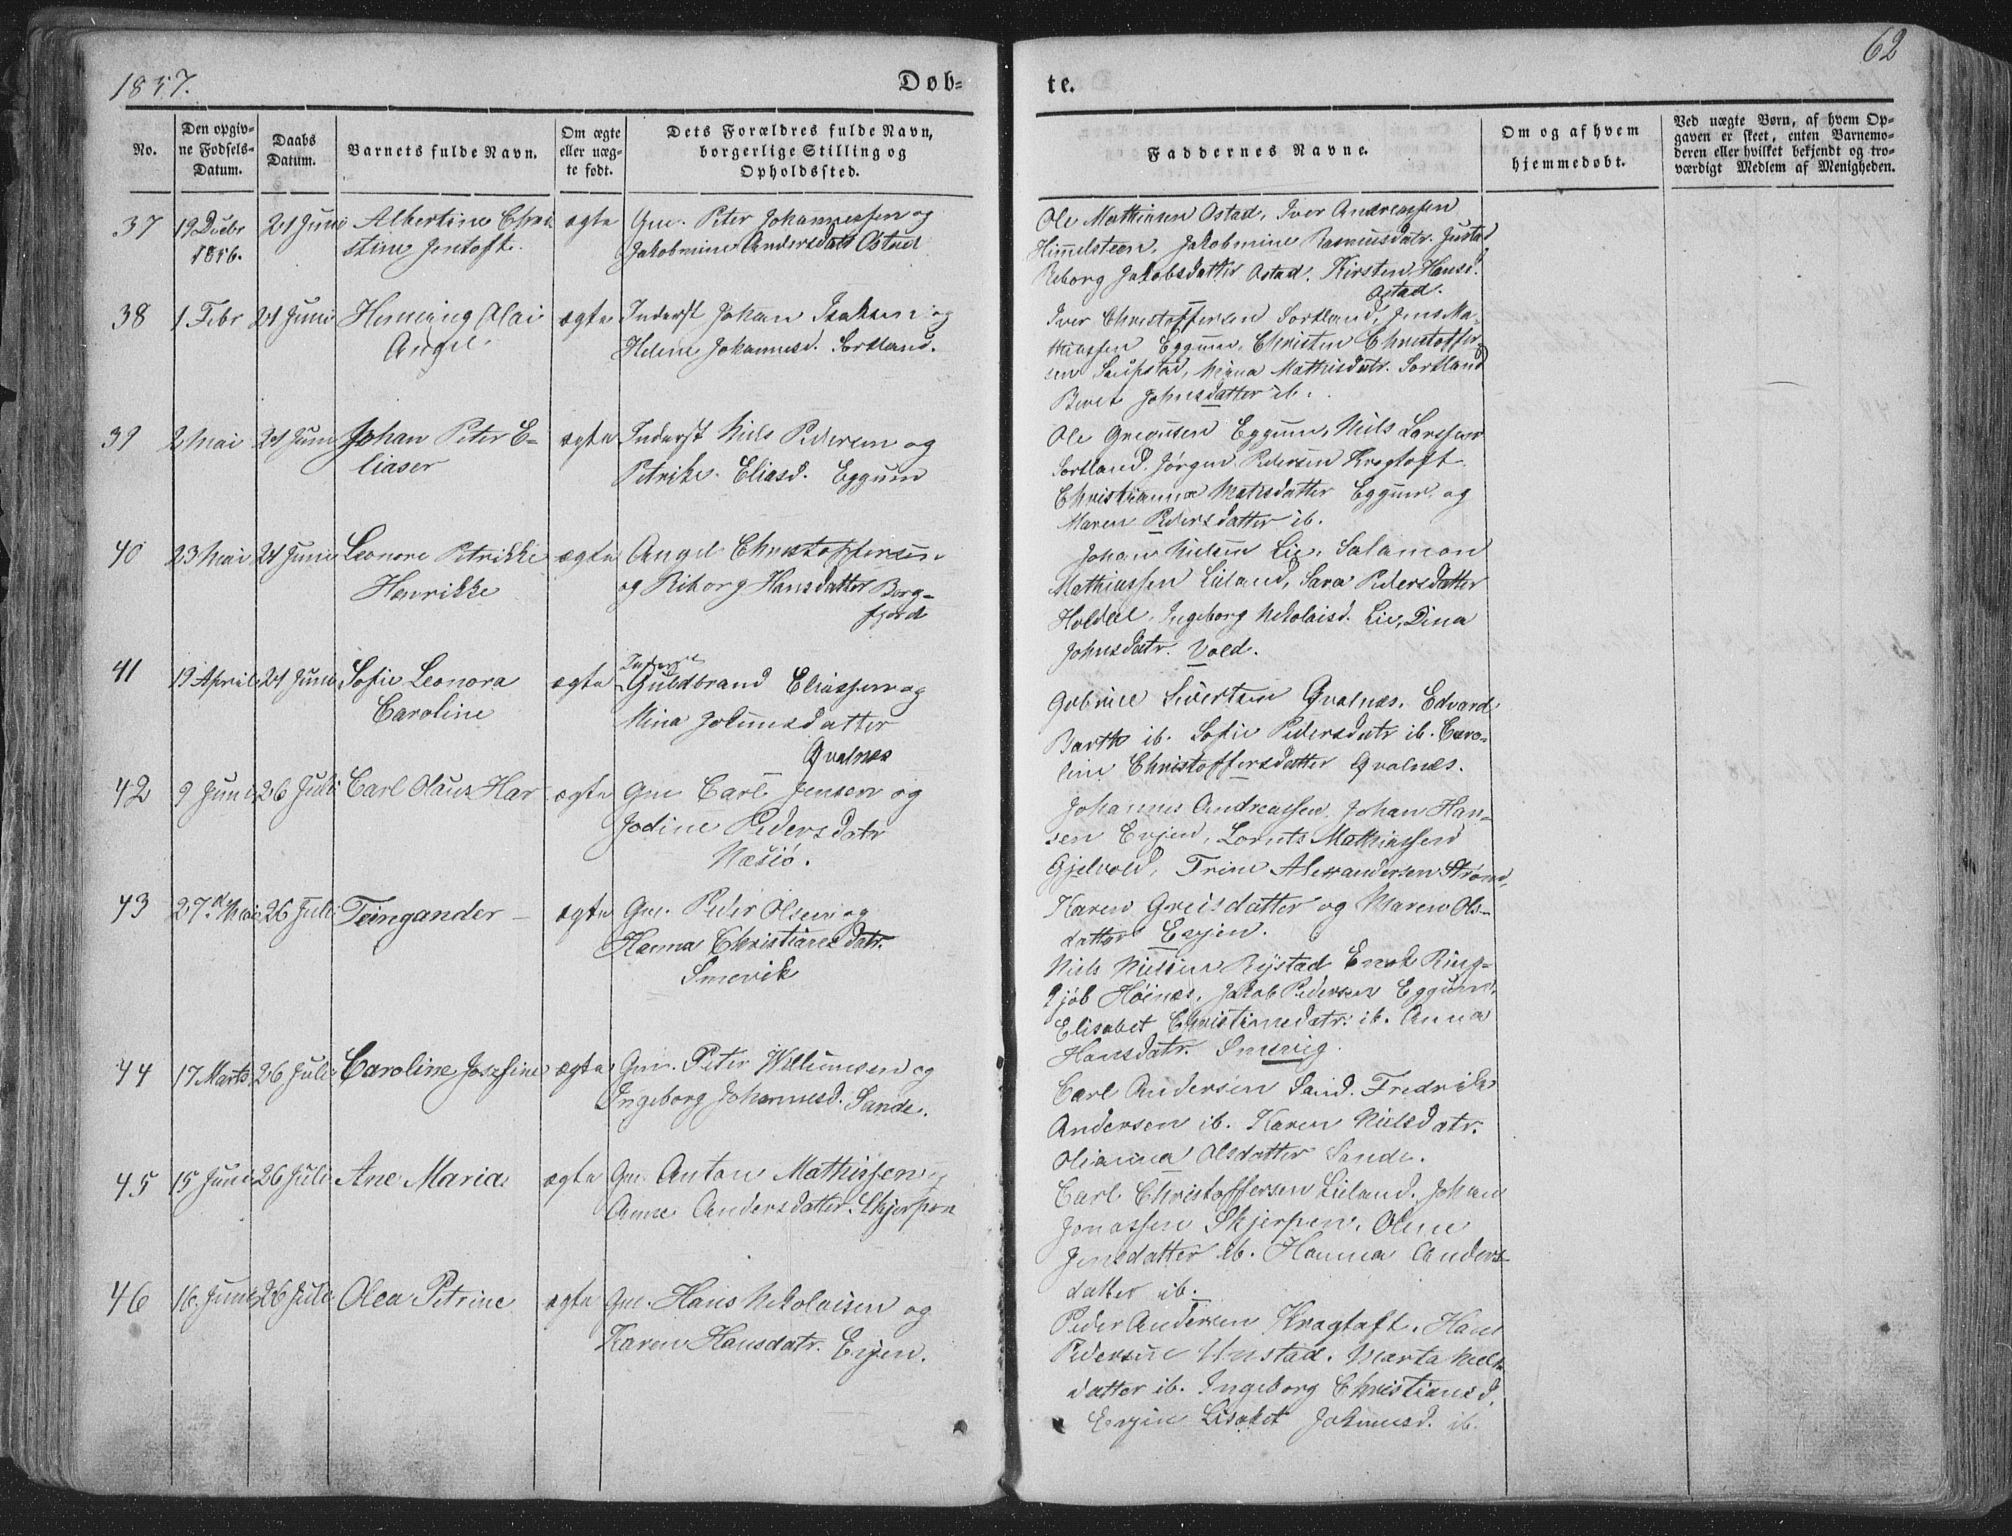 1857.
Døb-
te.
62
No.
Den opgiv-
ne Fødsels-
Datum.
Daabs
Datum.
Barnets fulde Navn.
Om ægte
eller uæg-
te født.
Dets Forældres fulde Navn,
borgerlige Stilling og
Opholdssted.
Faddernes Navne.
Om og af hvem
hjemmedøbt.
Ved uægte Børn, af hvem Op-
gaven er skeet, enten Barnemo-
deren eller hvilket bekjendt og tro-
værdigt Medlem af Menigheden.
37
19 Decbr
1856.
21 Juni
Albertine Chri
stine Jentoft.
ægte
Gm. Peter Johannessen og
Jakobmine Andersdatr Ostad
Ole Mathiasen Ostad, Iver Andreassen
Himelsteen, Jakobmine Rasmusdatr. Justad
Riborg Jakobsdatter Ostad. Kirsten Hansd.
Ostad.
38
1 Febr
21 Juni
Henning Olai
Angel.
ægte
Inderst Johan Isaksen og
Helene Johannesd. Sortland.
Iver Christoffersen Sortland, Jens Ma-
thiassen Eggum, Christen Christoffer-
sen Saupstad, Mina Mathisdatr. Sortland
Beret Johnsdatter ib.
39
2 Mai
21 Juni
Johan Peter E-
liaser
ægte
Inderst Niels Pedersen og
Petrike Eliasd. Eggum
Ole Greisen Eggum, Niels Larssen
Sortland. Jørgen Pedersen Kragtoft.
Christianna Matisdatter Eggum og
Maren Pedersdatter ib.
40
23 Mai
21 Juni
Leonore Petrikke
Henrikke
ægte
Angel Christoffersen
og Riborg Hansdatter Borg-
fjord
Johan Nielsen Lie, Salamon
Mathiassen Lieland, Sara Pedersdatter
Holdal, Ingeborg Nekolaisd. Lie, Dina
Johnsdatr. Vold.
41
19 April
21 Juni
Sofie Leonora
Caroline
ægte
Inderst
Guldbrand Eliassen og
Mina Johnsdatter
Qvalnes
Gabriel Sivertsen Qvalnæs. Edvard
Barth ib. Sofie Pedersdatr ib. Caro-
line Christoffersdatter Qvalnes.
42
9 Juni
26 Juli
Carl Olaus Har
ægte
Gm Carl Jensen og
Jodine Pedersdatr
Næsiø.
Johannes Andreassen, Johan Han-
sen Evjen, Lornts Mathiassen
Gjelvold, Trine Alexandersen Strønd,
Karen Greisdatter og Maren Ols-
datter Evjen.
43
27d Mai
26 Juli
Teingander
ægte
Gm. Peder Olsen og
Hanna Christiansdatr.
Smevik
Niels Nielsen Rystad Enok Ring-
Høines, Jakob Pedersen Eggum,
Elisabet Christiansdatr. ib. Anna
Hansdatr. Smevig.
44
17 Marts
26 Juli
Caroline Josefine
ægte
Gm. Peter Willumsen og
Ingeborg Johannesd. Sande.
Carl Andersen Sand. Fredrik
Andersen ib. Karen Nielsdatr.
Olianna Olsdatter Sande.
45
15 Juni
26 Juli
Ane Maria
ægte
Gm. Anton Mathissen og
Anne Andersdatter Skjerpen
Carl Christoffersen Lieland. Johan
Jonassen Skjerpen, Oline
Jensdatter ib. Hanna Anders-
datter ib.
46
16 Juni
26 Juli
Olea Petrine
ægte
Gm. Hans Nekolaisen og
Karen Hansdatr. Evjen.
Peder Andersen Kragtoft. Hans
Pedersen Unstad. Marta Niels-
datter ib. Ingeborg Christiansd.
Evjen Lisabet Johnnesd. ib.